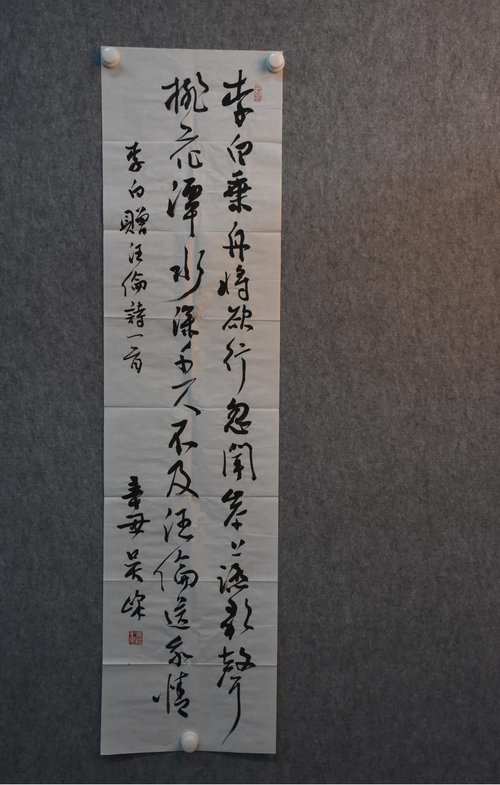 李白乘舟將欲行忽聞岸上踏歌聲
桃花潭水深千尺不及汪倫送我情
李白贈汪倫詩一首
辛丑 吳